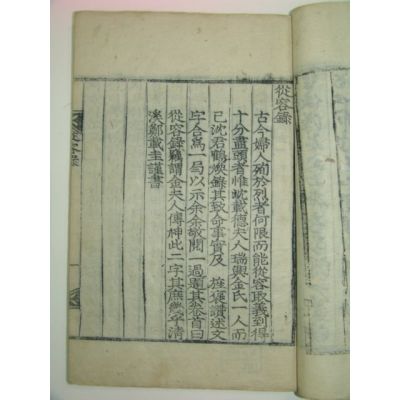 從容錄
古今婦人殉於烈者何限而能從容取義到得
十分盡頭者惟沈載德夫人瑞興金氏一人而
已沈君鶴煥錄其致命事實及 旌褒讚述文
字合爲一局以示余余敬閱一過題其卷首曰
從容錄竊謂金夫人傳神此二字其庶幾乎淸
溪鄭載圭謹書